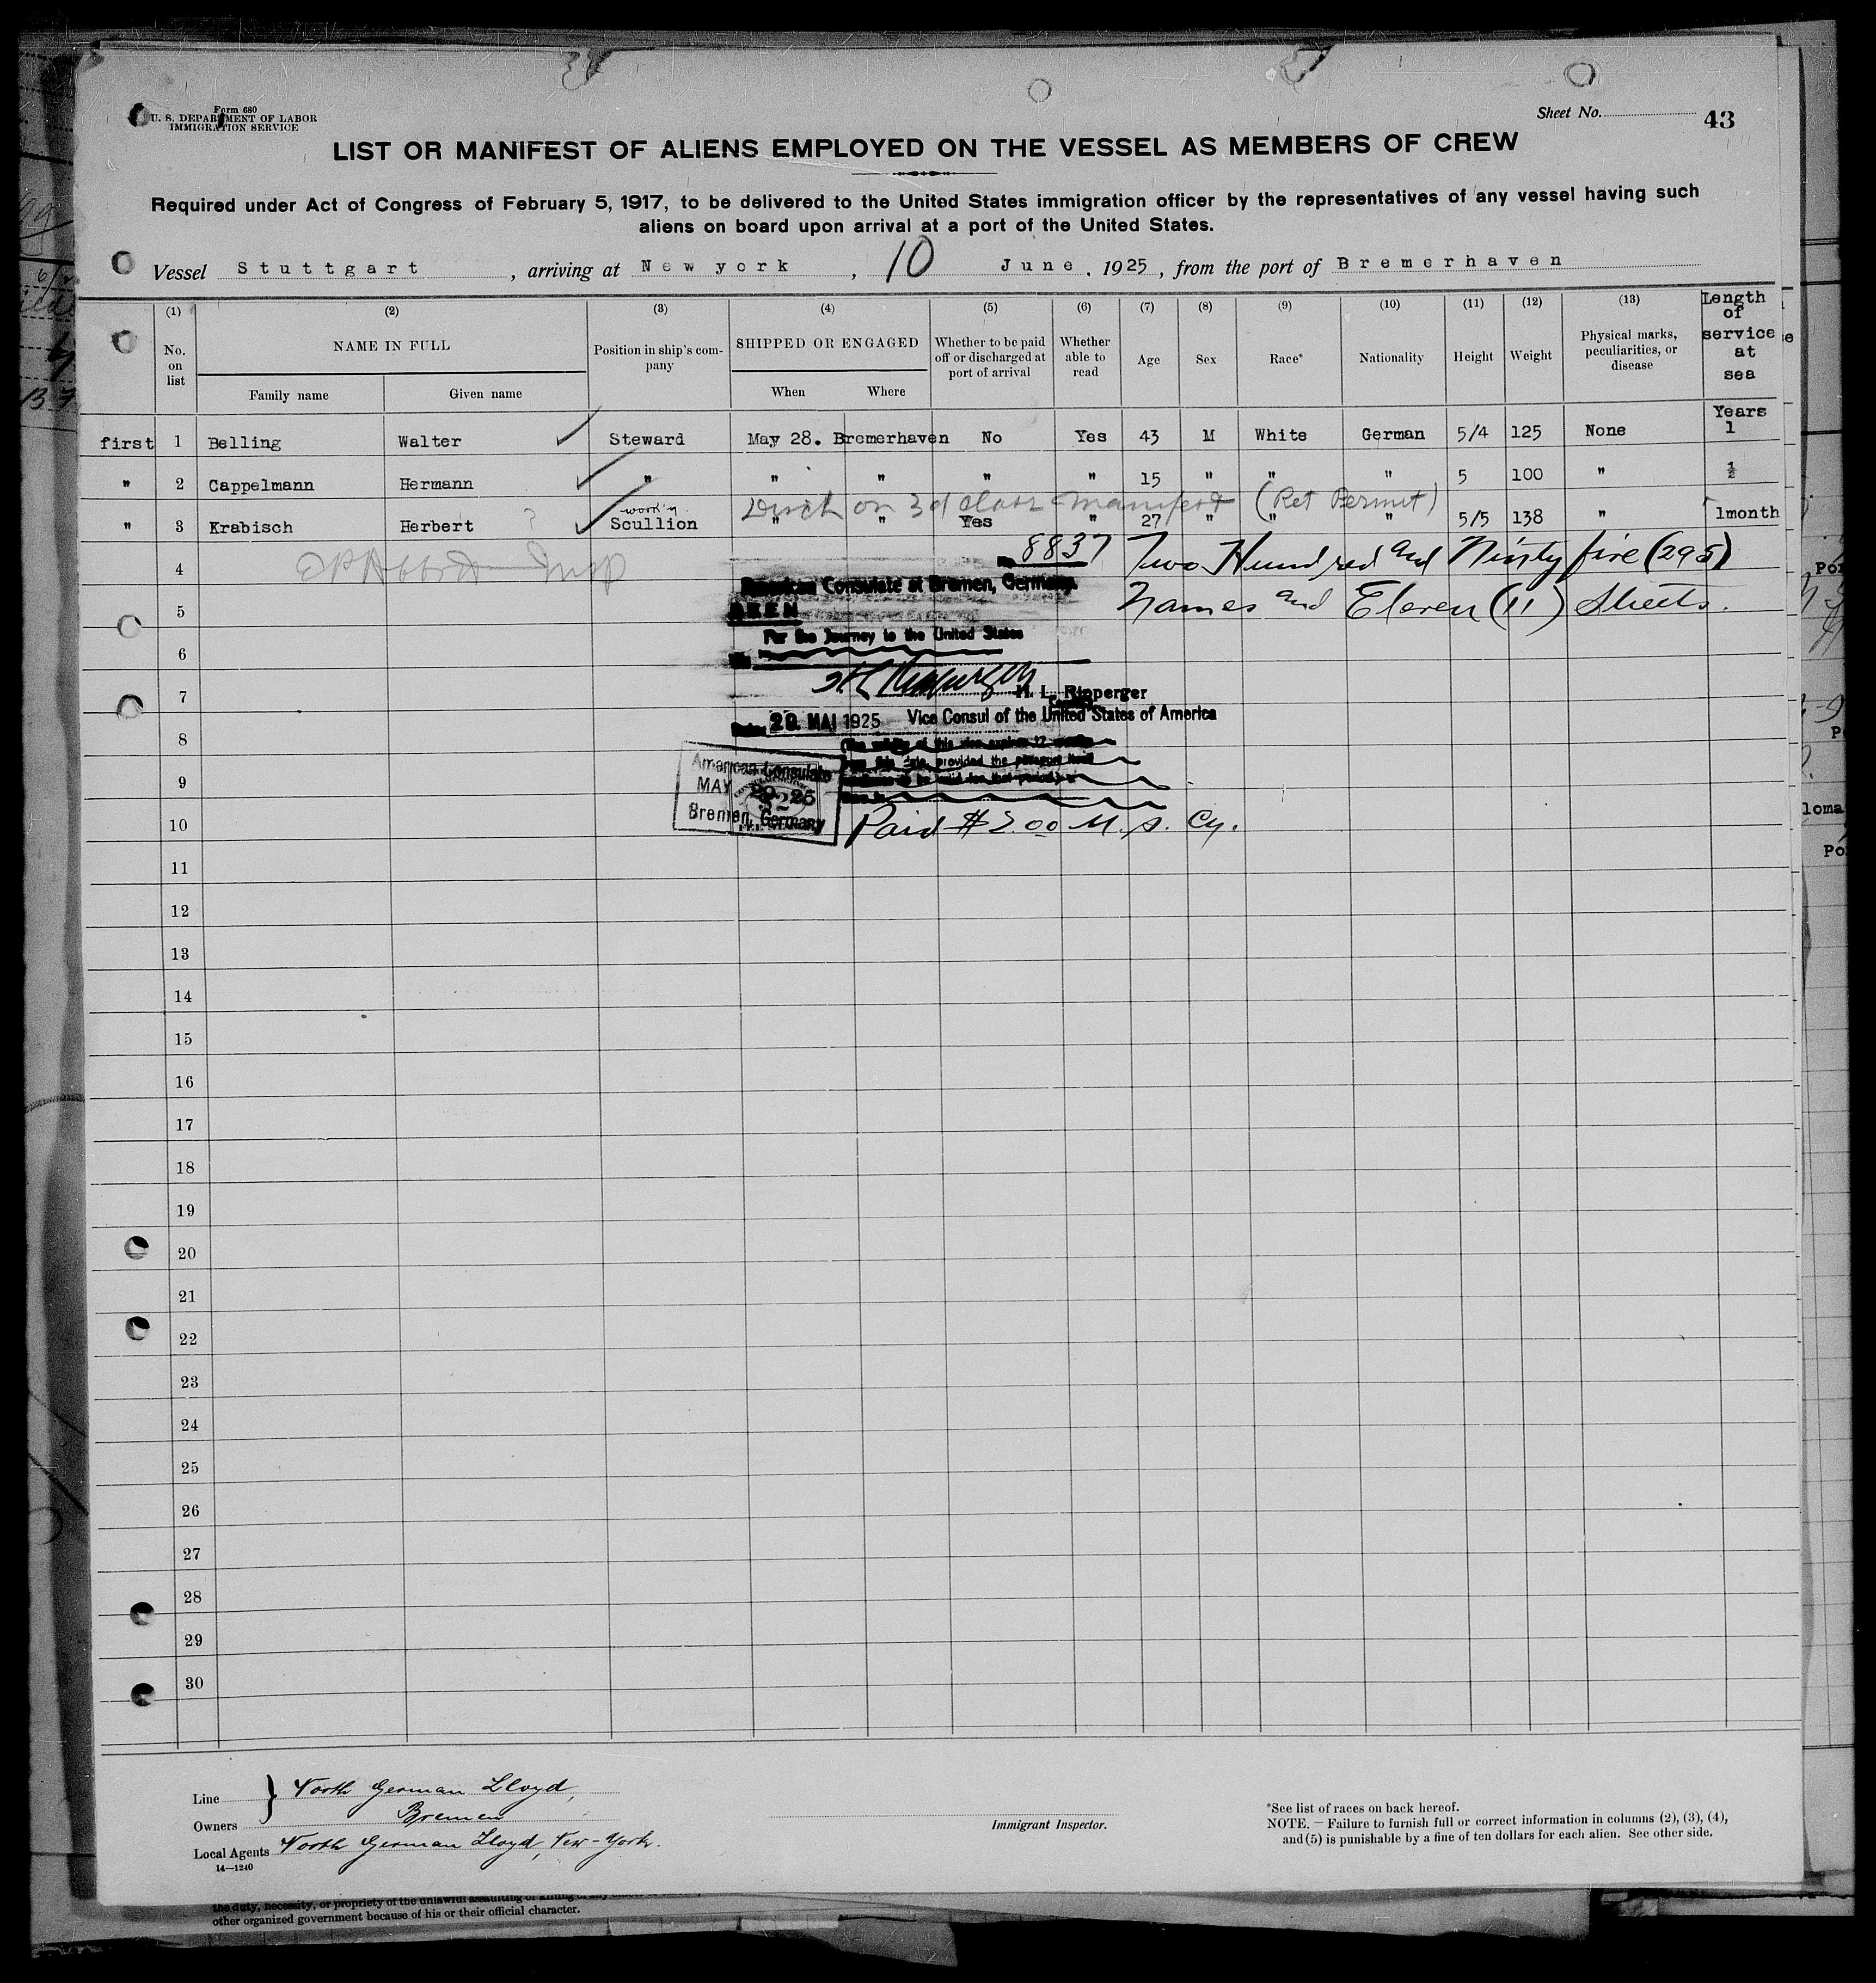 Form 680
U. S. DEPARTMENT OF LABOR
IMMIGRATION SERVICE
Sheet No. 43
LIST OR MANIFEST OF ALIENS EMPLOYED ON THE VESSEL AS MEMBERS OF CREW
Required under Act of Congress of February 5, 1917, to be delivered to the United States immigration officer by the representatives of any vessel having such
aliens on board upon arrival at a port of the United States.
Vessel Stuttgart, arriving at New york, 10 June, 1925, from the port of Bremerhaven
(1) (2) (3) (4) (5) (6) (7) (8) (9) (10) (11) (12) (13)
No. on list
NAME IN FULL
Family name
Given name
Position in ship's company
SHIPPED OR ENGAGED
When
Where
Whether to be paid off or discharged at port of arrival
Whether able to read
Age
Sex
Race*
Nationality
Height
Weight
Physical marks, peculiarities, or disease
Length of service at sea
Years
first 1 Belling Walter Steward May 28. Bremerhaven No Yes 43 M White German 5/4 125 None 1
" 2 Cappelmann Hermann " " " " " 15 " " " 5 100 " ½
Disch on 3d class manifest (Ret Permit)
" 3 Krabisch Herbert ? Scullion " " Yes " 27 " " " 5/5 138 " 1month
4
No. 8837 Two Hundred and Ninty five (295)
American Consulate at Bremen, Germany.
5
SEEN
Names and Eleven (11) Sheets.
For the Journey to the United States
6
7
H. L. Ripperger
Date: 29. MAI 1925 Vice Consul of the United States of America
8
American Consulate
MAY 29 25
Bremen, Germany
9
10
Paid $2.00 U. S. Cy.
11
12
13
14
15
16
17
18
19
20
21
22
23
24
25
26
27
28
29
30
Line
Owners
North German Lloyd,
Bremen
Local Agents North German Lloyd, New-York.
14—1240
Immigrant Inspector.
*See list of races on back hereof.
NOTE. — Failure to furnish full or correct information in columns (2), (3), (4),
and (5) is punishable by a fine of ten dollars for each alien. See other side.
the duty, necessity, or propriety of the unlawful assaulting or killing of any
other organized government because of his or their official character.